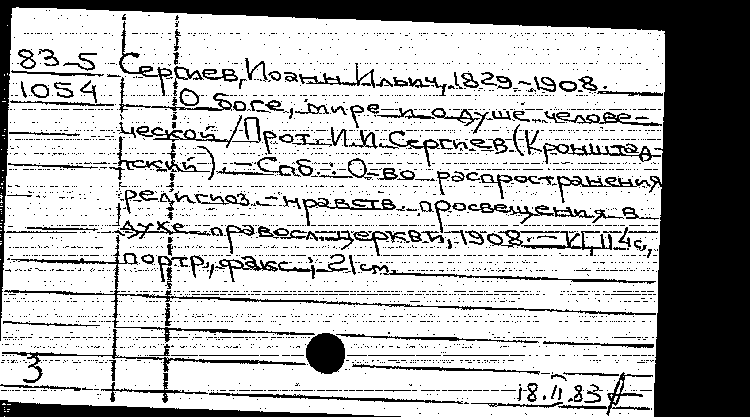 83-5
1054
Сергиев, Иоанн Ильич, 1829-1908.
О боге, мире и о душе челове-
ческой / Прот. И.И. Сергиев (Кроншта​д-
тский). - Спб.: О-во распространения
религиоз.-нравств. просвещения в
духе правосл. церкви, 1908. - VI, 114 с.,
портр., факс.; 21 см.
3
18.II.83